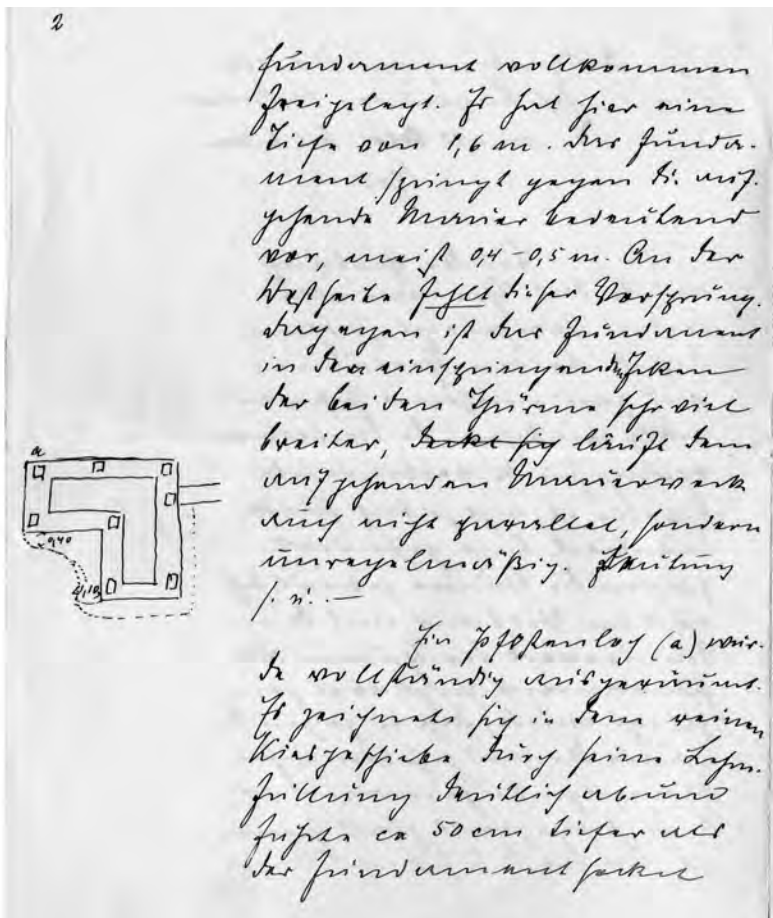 2
fundament vollkommen
freigelegt. Es hat hier eine
Tiefe von 1,6 m. Das Funda-
ment springt gegen die auf-
gehende Mauer bedeutend
vor, meist 0,4 – 0,5 m. An der
Westseite fehlt dieser Vorsprung.
dagegen ist das Fundament
in den einspringenden Ecken
der beiden Thürme sehr viel
breiter, deckt sich läuft dem
aufgehenden Mauerwerk
auch nicht parallel, sondern
unregelmäßig. Deutung
s. u. —
Ein Pfostenloch (a) wur-
de vollständig ausgeräumt.
Es zeichnete sich in dem reinen
Kiesgeschiebe durch seine Lehm-
füllung deutlich ab und
führte ca 50 cm tiefer als
der Fundamentsockel
a
0,40